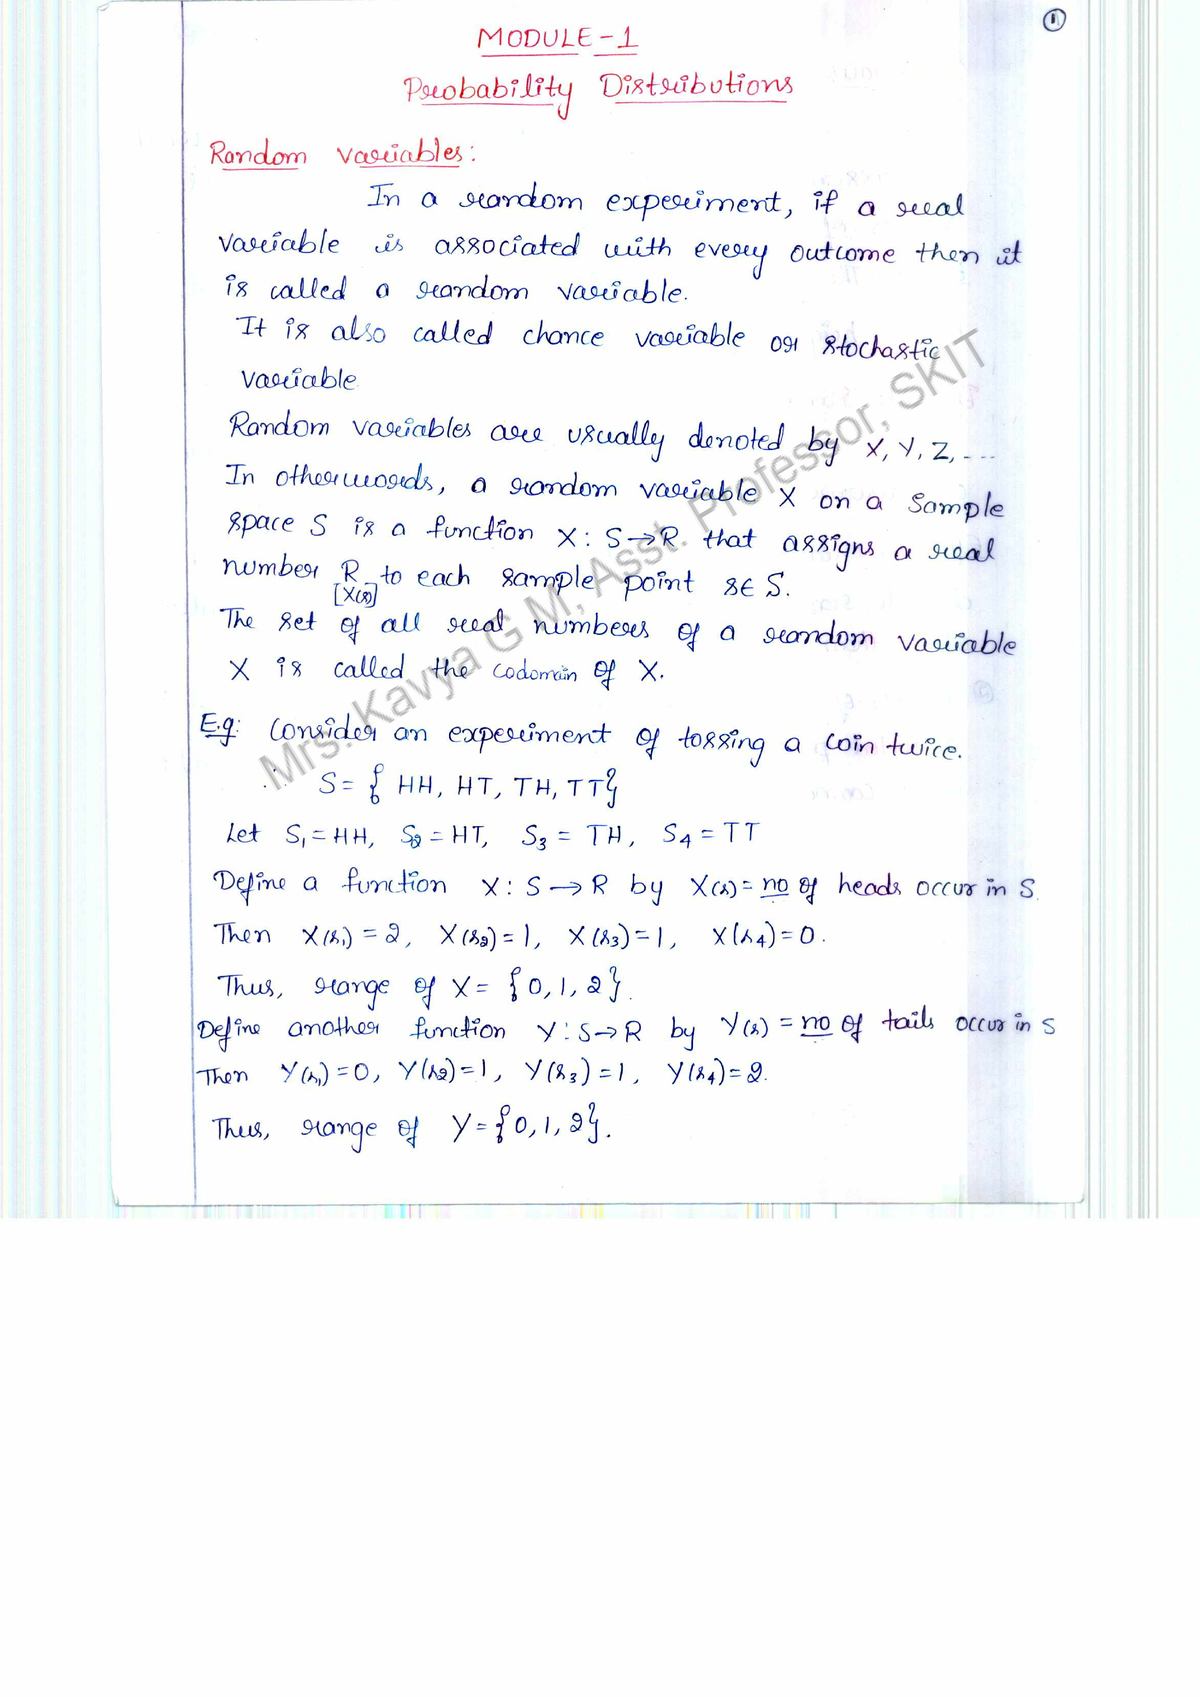 1
MODULE-1
Probability Distributions
Random Variables:
In a random experiment, if a real
variable is associated with every outcome then it
is called a random variable.
It is also called chance variable or stochastic
variable
Random variables are usually denoted by X, Y, Z, ...
In otherwords, a random variable X on a sample
space S is a function X: S→R that assigns a real
number R to each sample point s∈ S.
[X(s)]
The set of all real numbers of a random variable
X is called the codomain of X.
E.g: Consider an experiment of tossing a coin twice.
∴ S= { HH, HT, TH, TT}
Let S₁ = HH, S₂ = HT, S₃ = TH, S₄ = TT
Define a function X: S→R by X(s)= no of heads occur in S.
Then X(s₁) = 2, X(s₂)=1, X(s₃)=1, X(s₄)=0.
Thus, range of X= {0,1,2}.
Define another function Y: S→R by Y(s) = no of tails occur in S
Then Y(s₁)=0, Y(s₂)=1, Y(s₃)=1, Y(s₄)=2.
Thus, range of Y={0,1,2}.
Mrs. Kavya G M, Asst. Professor, SKIT